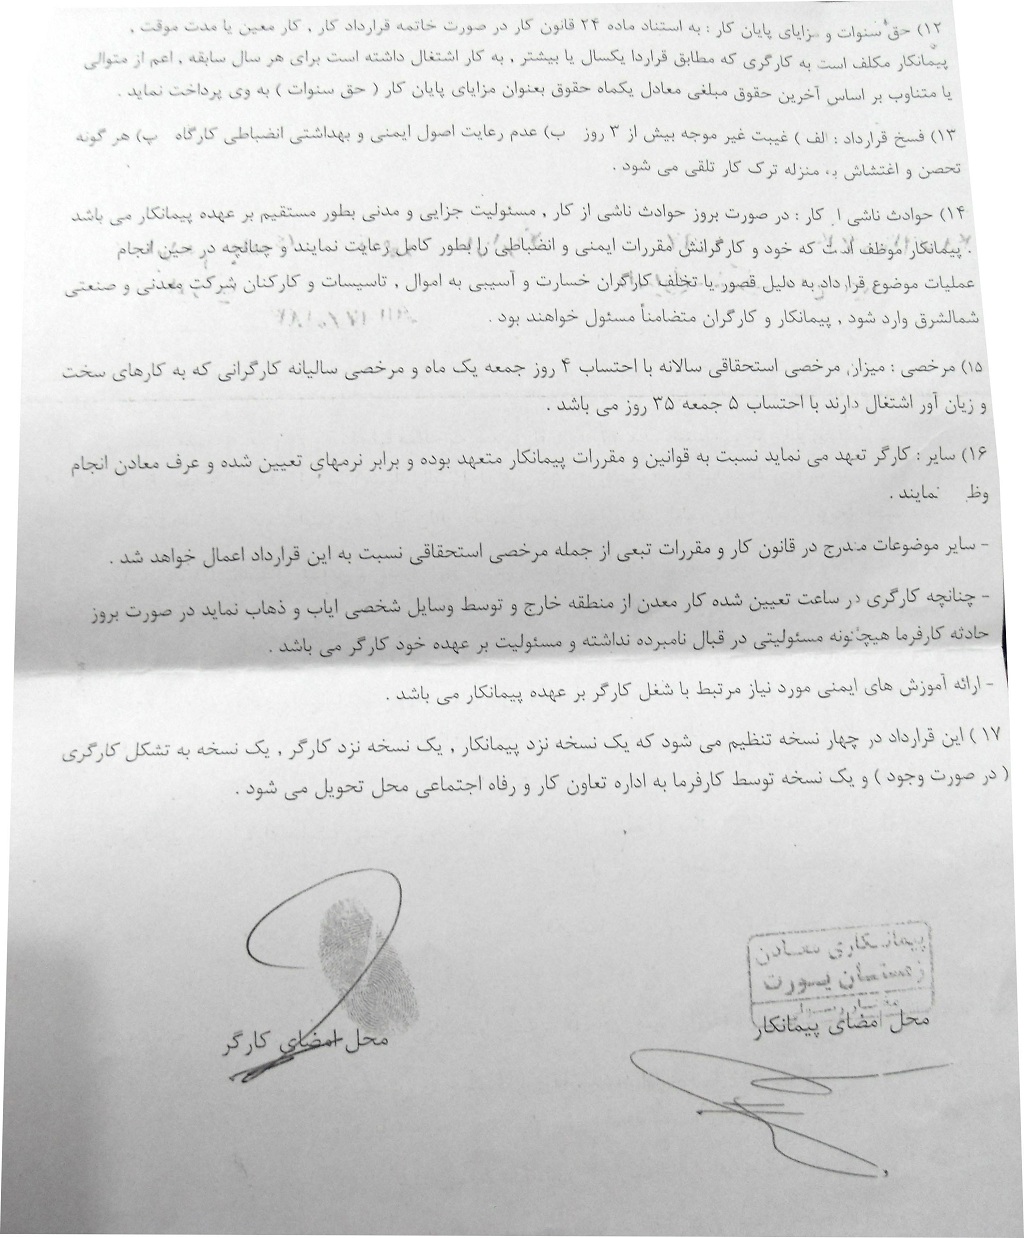 ۱۲) حق سنوات و مزایای پایان کار : به استناد ماده ۲۴ قانون کار در صورت خاتمه قرارداد کار , کار معین یا مدت موقت ,
پیمانکار مکلف است به کارگری که مطابق قراردا یکسال یا بیشتر , به کار اشتغال داشته است برای هر سال سابقه , اعم از متوالی
یا متناوب بر اساس آخرین حقوق مبلغی معادل یکماه حقوق بعنوان مزایای پایان کار ( حق سنوات ) به وی پرداخت نماید .
۱۳) فسخ قرارداد : الف ) غیبت غیر موجه بیش از ۳ روز ب) عدم رعایت اصول ایمنی و بهداشتی انضباطی کارگاه پ) هر گونه
تحصن و اغتشاش به منزله ترک کار تلقی می شود .
۱۴) حوادث ناشی از کار : در صورت بروز حوادث ناشی از کار , مسئولیت جزایی و مدنی بطور مستقیم بر عهده پیمانکار می باشد
. پیمانکار موظف است که خود و کارگرانش مقررات ایمنی و انضباطی را بطور کامل رعایت نمایند و چنانچه در حین انجام
عملیات موضوع قرارداد به دلیل قصور یا تخلف کارگران خسارت و آسیبی به اموال , تاسیسات و کارکنان شرکت معدنی و صنعتی
شمالشرق وارد شود , پیمانکار و کارگران متضامناً مسئول خواهند بود .
۱۵) مرخصی : میزان مرخصی استحقاقی سالانه با احتساب ۴ روز جمعه یک ماه و مرخصی سالیانه کارگرانی که به کارهای سخت
و زیان آور اشتغال دارند با احتساب ۵ جمعه ۳۵ روز می باشد .
۱۶) سایر : کارگر تعهد می نماید نسبت به قوانین و مقررات پیمانکار متعهد بوده و برابر نرمهای تعیین شده و عرف معادن انجام
نمایند .
- سایر موضوعات مندرج در قانون کار و مقررات تبعی از جمله مرخصی استحقاقی نسبت به این قرارداد اعمال خواهد شد .
- چنانچه کارگری در ساعت تعیین شده کار معدن از منطقه خارج و توسط وسایل شخصی ایاب و ذهاب نماید در صورت بروز
حادثه کارفرما هیچگونه مسئولیتی در قبال نامبرده نداشته و مسئولیت بر عهده خود کارگر می باشد .
- ارائه آموزش های ایمنی مورد نیاز مرتبط با شغل کارگر بر عهده پیمانکار می باشد .
۱۷ ) این قرارداد در چهار نسخه تنظیم می شود که یک نسخه نزد پیمانکار , یک نسخه نزد کارگر , یک نسخه به تشکل کارگری
( در صورت وجود ) و یک نسخه توسط کارفرما به اداره تعاون کار و رفاه اجتماعی محل تحویل می شود .
پیمانکاری معادن
زمستان یورت
محل امضای پیمانکار
محل امضای کارگر